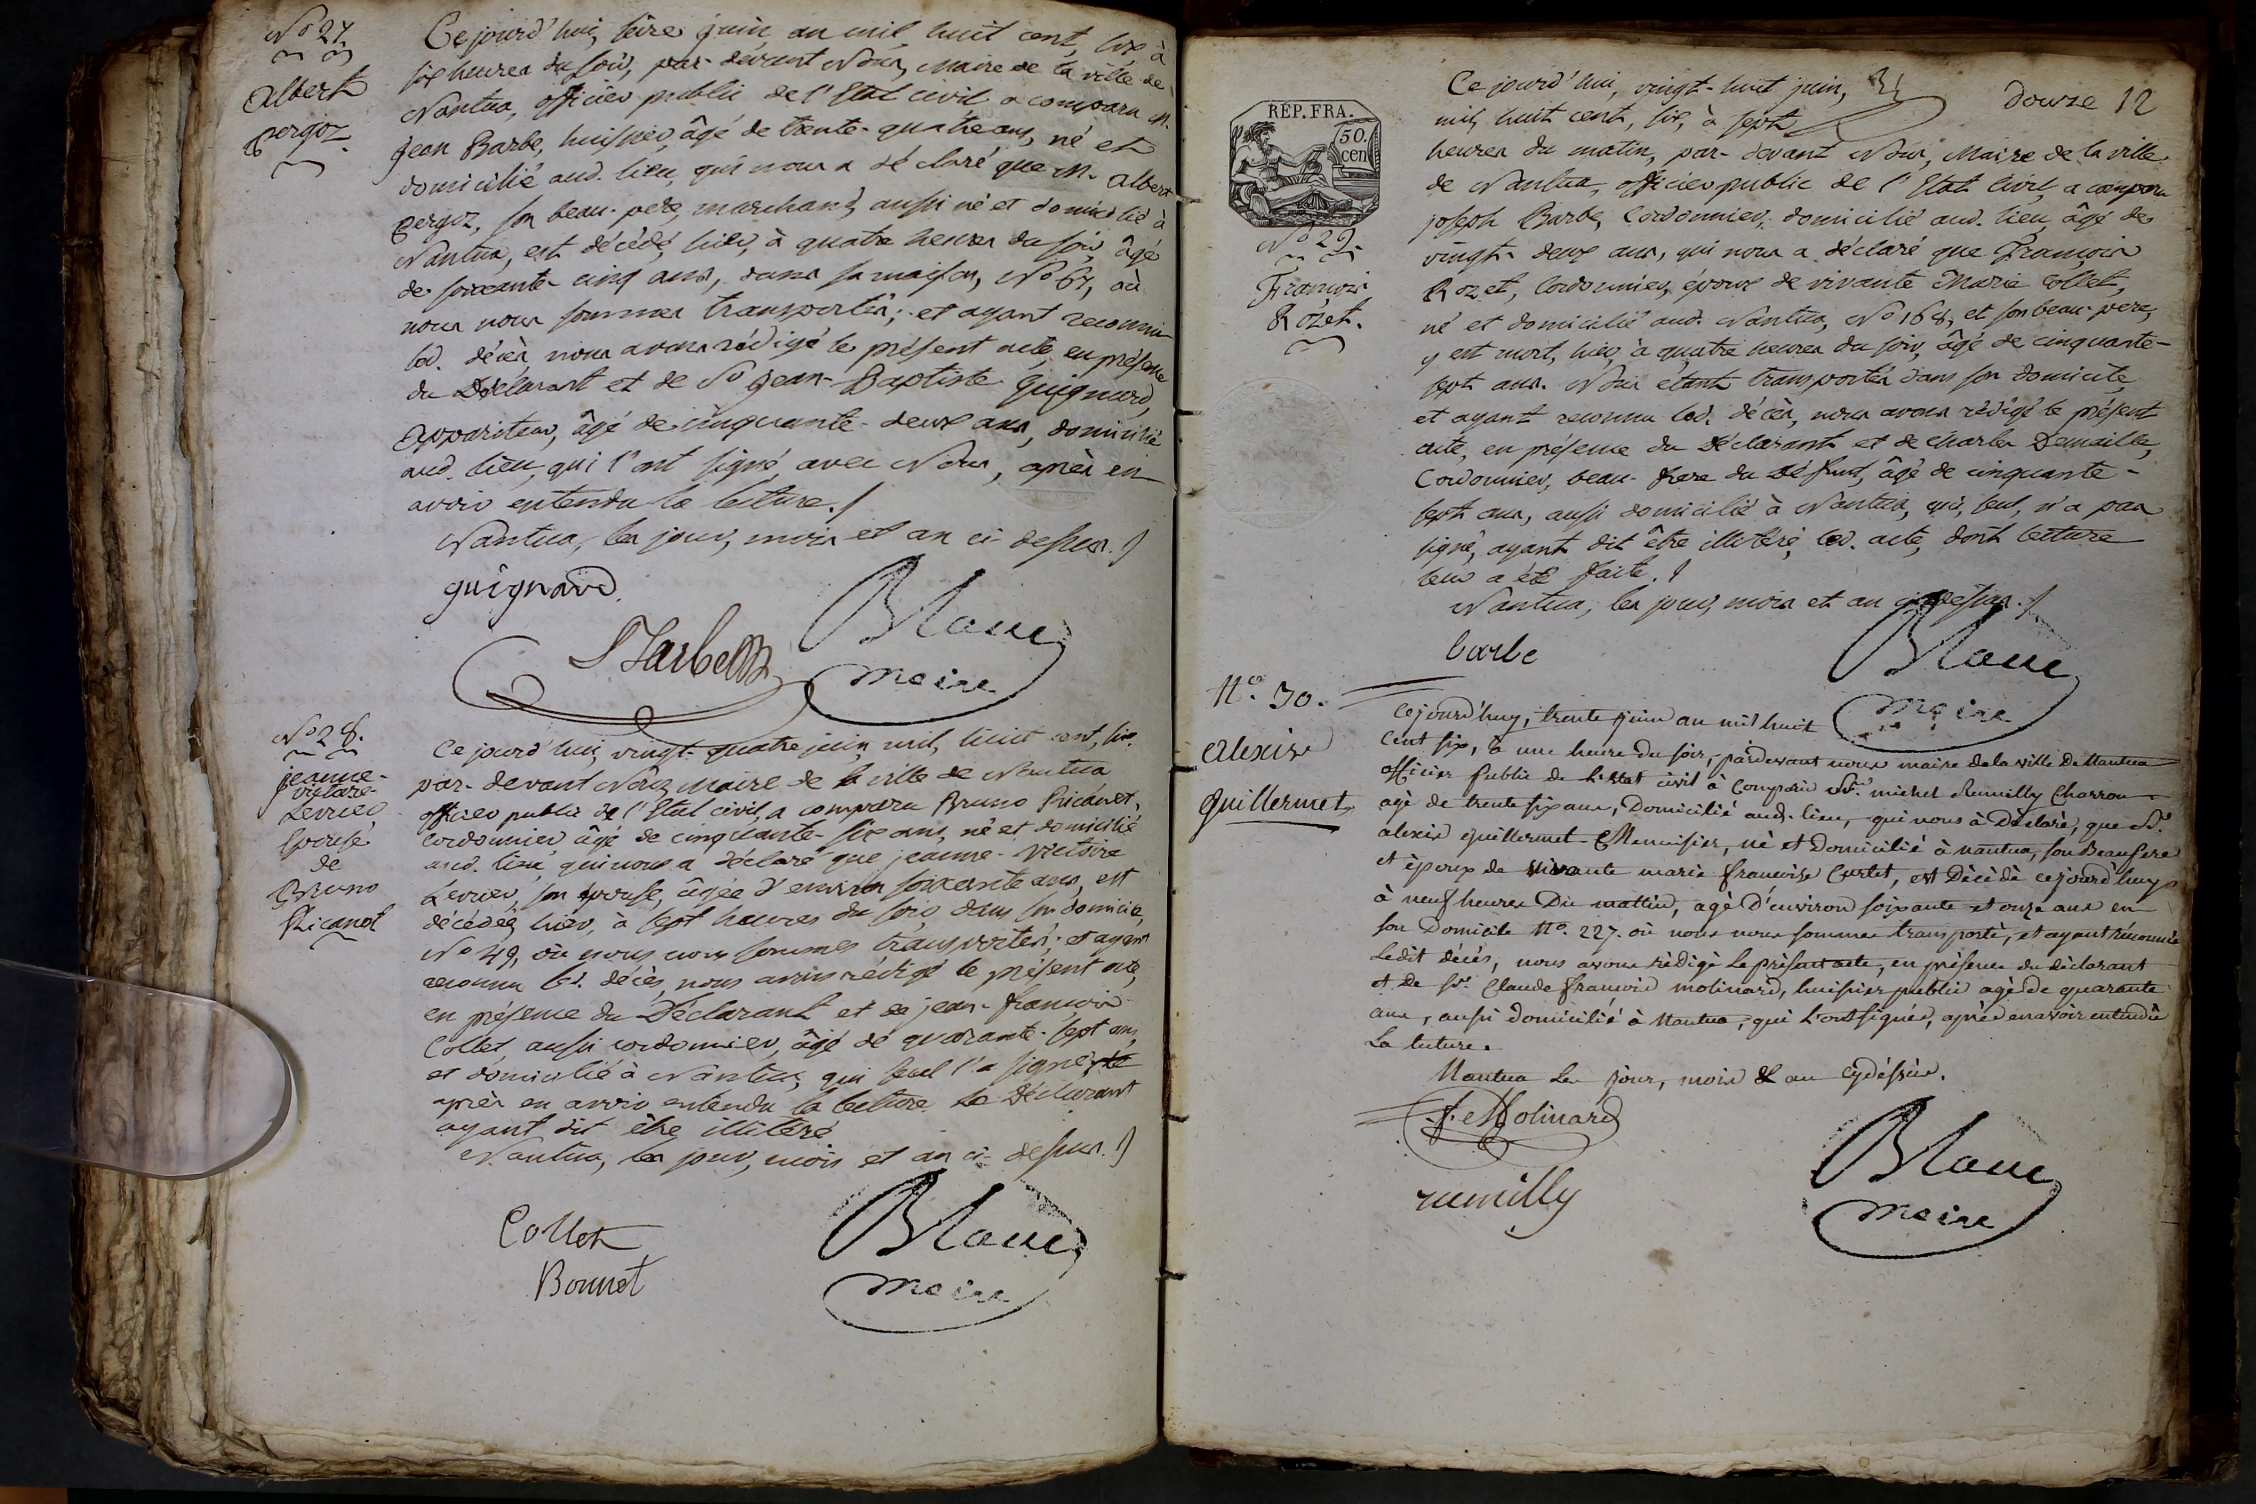 N° 27.
Albert
Pergoz.
Ce jourd'hui, seize juin an mil huit cent, six à
six heures du soir, par-devant Nous, Maire de la ville de
Nantua, officier public de l'Etat civil a comparu M.
Jean Barbe, huissier, âgé de trente-quatre ans, né et
domicilié aud. lieu, qui nous a déclaré que M. Albert
Pergoz, son beau-pere, marchand, aussi né et domicilié à
Nantua, est décédé, hier, à quatre heures du soir, âgé
de soixante-cinq ans, dans sa maison, N° 67, où
nous nous sommes transportés; et ayant reconnu
led. décès, nous avons rédigé le présent acte, en présence
du Déclarant et de Sr Jean-Baptiste Guignard,
appariteur, âgé de cinquante-deux ans, domicilié
aud. lieu, qui l'ont signé, avec Nous, après en
avoir entendu la lecture./
Nantua, les jour, mois et an ci-dessus./
guignard
Barbe
Blanc
maire
N° 28.
jeanne-
victoire-
Levrier
Epouse
de
Bruno
Picanet
Ce jourd'hui, vingt-quatre juin, mil, huit cent, six,
par-devant Nous, Maire de la ville de Nantua
officier public de l'Etat civil, a comparu Bruno Picanet,
Cordonnier âgé de cinquante-six ans, né et domicilié
aud. lieu, qui nous a déclaré que jeanne-Victoire
Levrier, son epouse, âgée d'environ soixante ans, est
décédée, hier, à sept heures du soir dans son domicile,
N° 49, où nous nous sommes transportés; et ayant
reconnu led. décès, nous avons rédigé le présent acte,
en présence du Déclarant et de jean-françois
Collet, aussi cordonnier, âgé de quarante-sept ans,
et domicilié à Nantua, qui seul l'a signé,
après en avoir entendu la lecture Le Déclarant
ayant dit être illitéré
Nantua, les jour, mois et an ci-dessus./
Collet
Bonnet
Blanc
maire
douze 12
REP. FRA.
50.
cen
N° 29.
François
Rozet.
Ce jourd'hui, vingt-huit juin,
mil, huit cent, six, à sept
heures du matin, par-devant Nous, Maire de la ville
de Nantua, officier public de l'Etat Civil, a comparu
joseph Barbe, Cordonnier, domicilié aud. lieu, âgé de
vingt-deux ans, qui nous a déclaré que François
Rozet, Cordonnier, époux de vivante Marie Collet,
né et domicilié aud. Nantua, N° 168, et son beau-pere,
y est mort, hier, à quatre heures du soir, âgé de cinquante-
sept ans. Nous étant transportés dans son domicile
et ayant reconnu led. décès, nous avons rédigé le présent
acte, en présence du Déclarant et de Charles Demaille,
Cordonnier, beau-frere du Défunt, âgé de cinquante-
sept ans, aussi domicilié à Nantua, qui, seul, n'a pas
signé, ayant dit être illitéré, led. acte, dont lecture
leur a été faite./
Nantua, les jour, mois et an ci-dessus./
barbe
Blanc
maire
N° 30.
Alexis
Guillermet
Cejourd'huy, trente juin an mil huit
cent six, à une heure du soir, pardevant nous maire de la ville de Nantua
officier public de l'Etat civil à comparu Sr. michel Reumilly Charron
agé de trente six ans, Domicilié aud. lieu, qui nous à Déclaré, que Sr.
alexis guillermet Menuisier, né et Domicilié à nantua, son Beaupere
et époux de vivante marie françoise Curtet, est Décédé cejourd'huy
à neuf heures Du mattin, agé D'environ soixante et onze ans en
son Domicile N°. 227. où nous nous sommes transporté, et ayant reconnu
Ledit décés, nous avons rédigé le présent acte, en présence du déclarant
et de Sr. Claude françois molinard, huissier public agé de quarante
ans, aussi domicilié à Nantua, qui L'ont signés, après en avoir entendu
La lecture.
Nantua Les jour, mois & an cydessus.
f. Molinard
reumilly
Blanc
maire